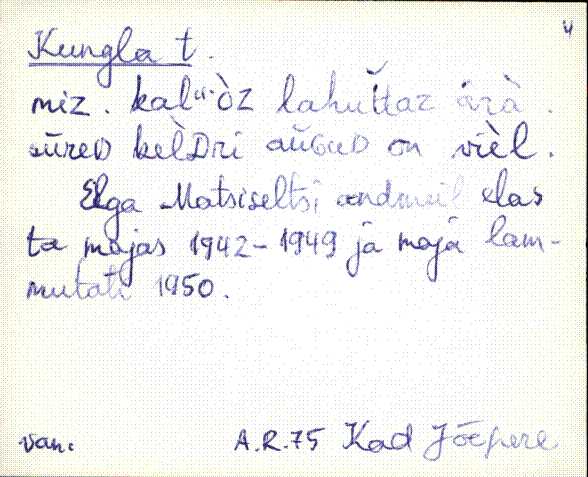 4
Kungla t.
miz. kal"òz lahuťtaz ärà.
sūreD kèlDri aùGuD on vièl.
Elga Matsiseltsi andmeil elas
ta majas 1942-1949 ja maja lam-
mutati 1950.
van: A.R.75 Kad Jõepere